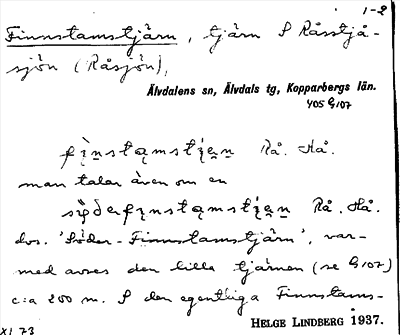 1-2
Finnstamstjärn, tjärn S Råsstjå-
sjön (Råsjön),
Älvdalens sn, Älvdals tg, Kopparbergs län.
405 G107
fi̇̀nstąmstįęn Rå. Hå.
man talar även om en
sø̀̇derfįnstąmstįęn Rå. Hå.
dvs. 'Söder-Finnstamstjärn', var-
med avses den lilla tjärnen (se G107)
c:a 200 m. S den egentliga Finnstams-
HELGE LINDBERG 1937.
XI 73